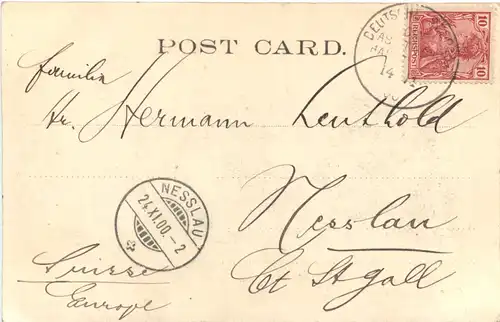 POST CARD.
Familie
Hr. Hermann Leuthold
Nesslau
Ct St gall
Suisse
Europe
NESSLAU
24.XI.00.-2
DEUTSCHE
14
10 REICHSPOST 10